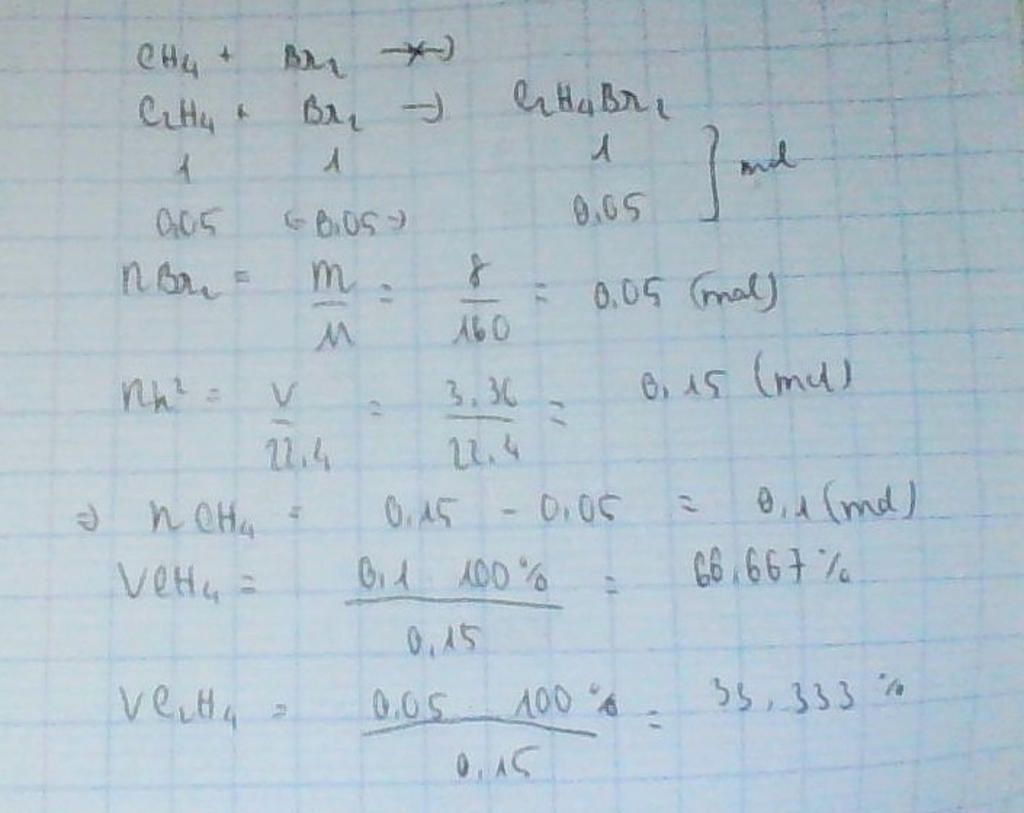 CH₄ + Br₂ -×->
C₂H₄ + Br₂ -> C₂H₄Br₂
1 1 1 ] mol
0,05 <- 0,05 -> 0,05
nBr₂ = m/M = 8/160 = 0,05 (mol)
nh² = V/22,4 = 3,36/22,4 = 0,15 (mol)
=> nCH₄ = 0,15 - 0,05 = 0,1 (mol)
VCH₄ = 0,1 100%/0,15 = 66,667%
VC₂H₄ = 0,05 100%/0,15 = 33,333%